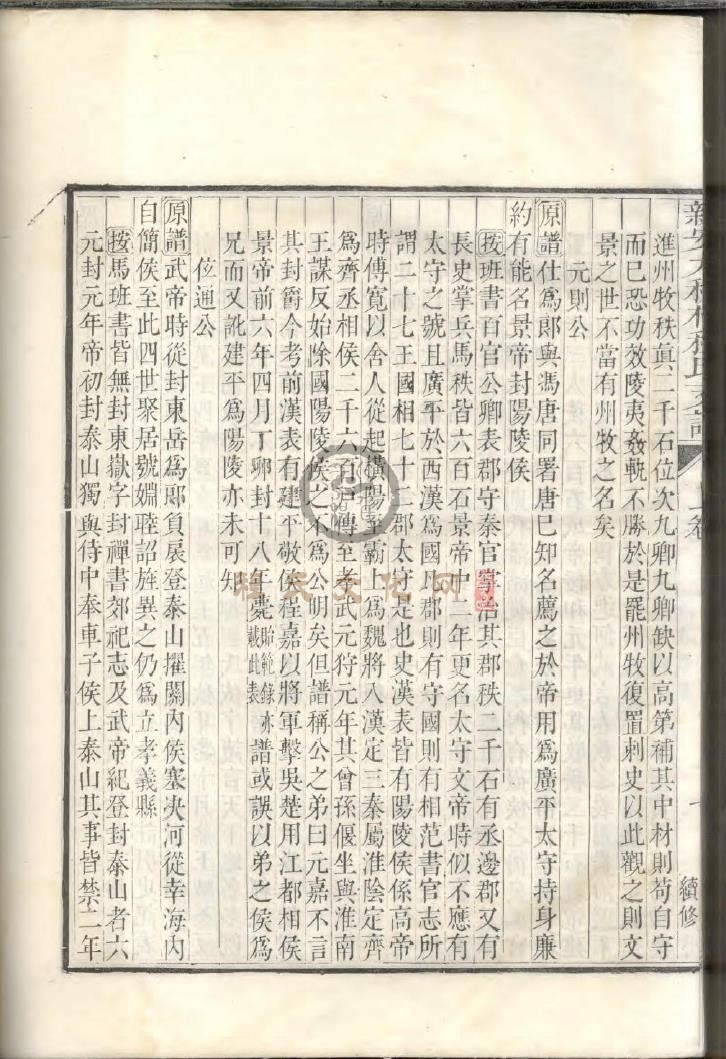 進州牧秩眞二千石位次九卿九卿缺以高第補其中材則苟自守
而巳恐功效陵夷姦軌不勝於是罷州牧復置刺史以此觀之則文
景之世不當有州牧之名矣
元則公
原譜仕爲郎與馮唐同署唐巳知名薦之於帝用爲廣平太守持身廉
約有能名景帝封陽陵侯
按班書百官公卿表郡守秦官掌治其郡秩二千石有丞邊郡又有
長史掌兵馬秩皆六百石景帝中二年更名太守文帝時似不應有
太守之號且廣平於西漢爲國凡郡則有守國則有相范書官志所
謂二十七王國相七十一郡太守是也史漢表皆有陽陵侯係高帝
時傅寬以舍人從起橫陽至霸上爲魏將入漢定三秦屬淮陰定齊
爲齊丞相侯二千六百戸傳至孝武元狩元年其曾孫偃坐與淮南
王謀反始除國陽陵侯之不爲公明矣但譜稱公之弟曰元嘉不言
其封爵今考前漢表有建平敬侯程嘉以將軍擊吳楚用江都相侯
景帝前六年四月丁卯封十八年薨貽範錄亦載此表譜或誤以弟之侯爲
兄而又訛建平爲陽陵亦未可知
位通公
原譜武帝時從封東岳爲郎負扆登泰山擢關內侯塞决河從幸海內
自簡侯至此四世聚居號婣睦詔旌異之仍爲立孝義縣
按馬班書皆無封東嶽字封禪書郊祀志及武帝紀登封泰山者六
元封元年帝初封泰山獨與侍中奉車子侯上泰山其事皆禁二年
上卷
續修
程氏文化网